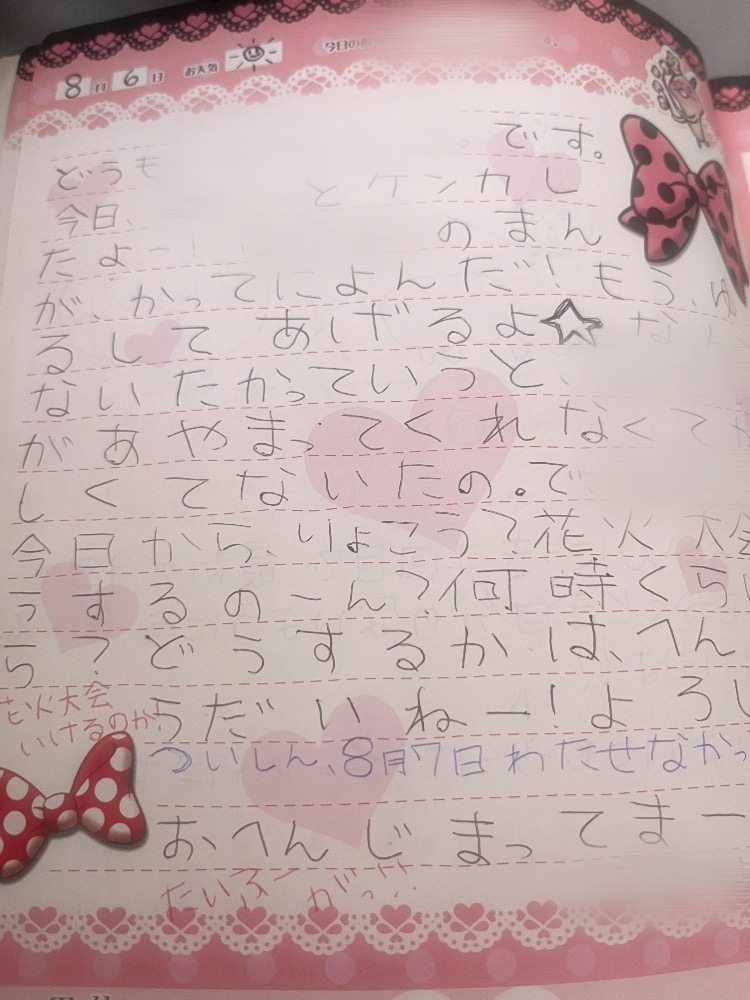 8月6日 お天気 今日の
です。
どうも
とケンカし
今日、
のまん
たよー!
が、かってによんだ!もう、ゆ
るしてあげるよ☆
ないたかっていうと、
があやまってくれなくて
しくてないたの。で
今日から、りょこう?花火大会
うするのーん?何時くらい
ら?どうするかは、へん
花火大会
いけるのか!
うだいねー!よろし
ついしん、8月7日わたせなかっ
おへんじまってまー
たいふーがっ!!